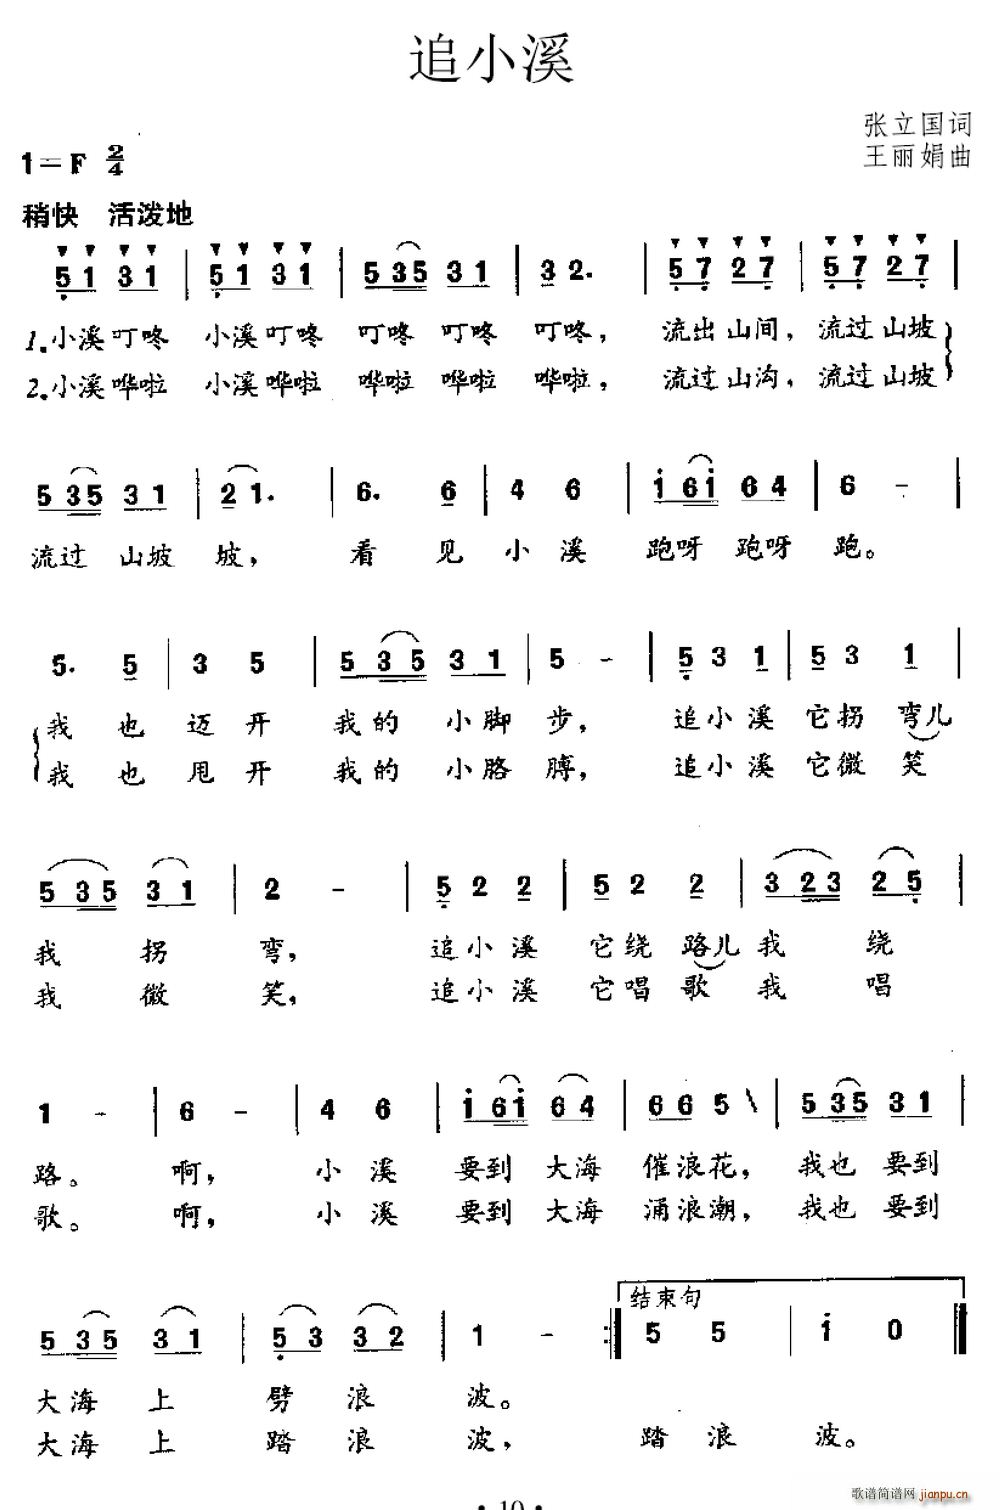 追小溪
张立国词
1=F 2/4
王丽娟曲
稍快 活泼地
5 1 3 1 | 5 1 3 1 | 5 3 5 3 1 | 3 2. | 5 7 2 7 | 5 7 2 7 |
1.小溪叮咚 小溪叮咚 叮咚 叮咚 叮咚, 流出山间, 流过山坡
2.小溪哗啦 小溪哗啦 哗啦 哗啦 哗啦, 流过山沟, 流过山坡
5 3 5 3 1 | 2 1. | 6. 6 | 4 6 | i 6 i 6 4 | 6 - |
流过 山坡 坡, 看 见 小 溪 跑呀 跑呀 跑。
5. 5 | 3 5 | 5 3 5 3 1 | 5 - | 5 3 1 | 5 3 1 |
我 也 迈 开 我 的 小 脚 步, 追小 溪 它拐 弯儿
我 也 甩 开 我 的 小 胳 膊, 追小 溪 它微 笑
5 3 5 3 1 | 2 - | 5 2 2 | 5 2 2 | 3 2 3 2 5 |
我 拐 弯, 追小 溪 它绕 路儿 我 绕
我 微 笑, 追小 溪 它唱 歌 我 唱
1 - | 6 - | 4 6 | i 6 i 6 4 | 6 6 5 \ | 5 3 5 3 1 |
路。 啊, 小 溪 要到 大海 催浪花, 我也 要到
歌。 啊, 小 溪 要到 大海 涌浪潮, 我也 要到
结束句
5 3 5 3 1 | 5 3 3 2 | 1 - :‖ 5 5 | i 0 ‖
大海 上 劈 浪 波。
大海 上 踏 浪 波, 踏 浪 波。
• 10 •
歌谱简谱网 jianpu.cn